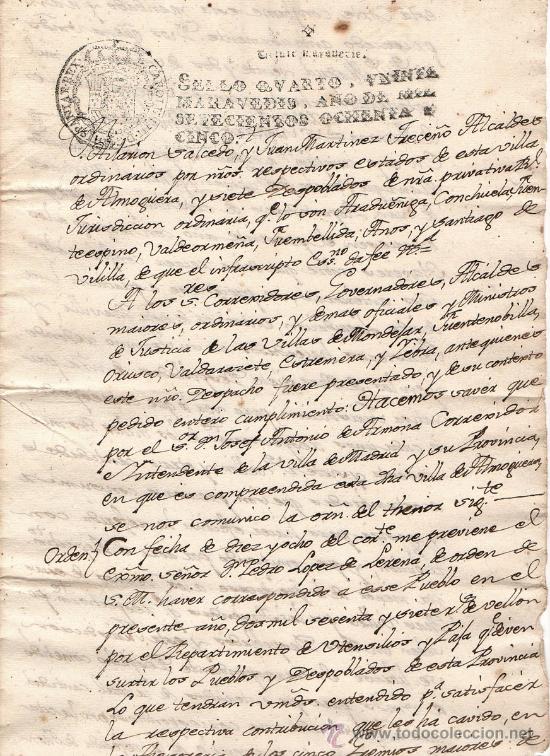 Veinte maravedis.
SELLO QVARTO, VEINTE
MARAVEDIS, AÑO DE MIL
SETECIENTOS OCHENTA Y
CINCO.
Hilarion Salcedo, y Juan Martinez Treceño Alcaldes
ordinarios por nrõs. respectivos estados de esta Villa
de Almoguera, y siete Despoblados de nrã. privativa
Jurisdiccion ordinaria, qe. lo son Araduéñiga, Conchuela, Fuen
teespino, Valdeormeña, Fuembellida, Anos, y Santiago de
Vililla, de que el infrascripto Essno. da fee
A los sres. Correxidores, Governadores, Alcaldes
maiores, ordinarios, y demas oficiales y Ministros
de Justicia de las Villas de Mondejar, Fuentenobilla,
Orusco, Valdaracete, Estremera, y Yebra, ante quienes
este nrõ. Despacho fuere presentado, y de su contento
pedido entero cumplimiento: Hacemos saver que
por el sor. Dn. Josef Antonio de Armona Correxidor
e Intendente de la Villa de Madrid y su Provincia,
en que es compreendida esta dha Villa de Almoguera,
se nos comunico la orñ. del thenor sigte.
Orden
Con fecha de diez y ocho del corte. me previene el
exmo. señor Dn. Pedro Lopez de Lerena, de orden de
S. M. haver correspondido a ese Pueblo en el
presente año, dos mil sesenta y siete rs. de vellon
por el Repartimiento de Utensilios y Paja qe. deven
surtir los Pueblos y Despoblados de esta Provincia
Lo que tendran vmds. entendido pa. satisfacer
la respectiva contribucion que les ha cavido, en
la de los cinco Gremios maiores de
todocoleccion.net